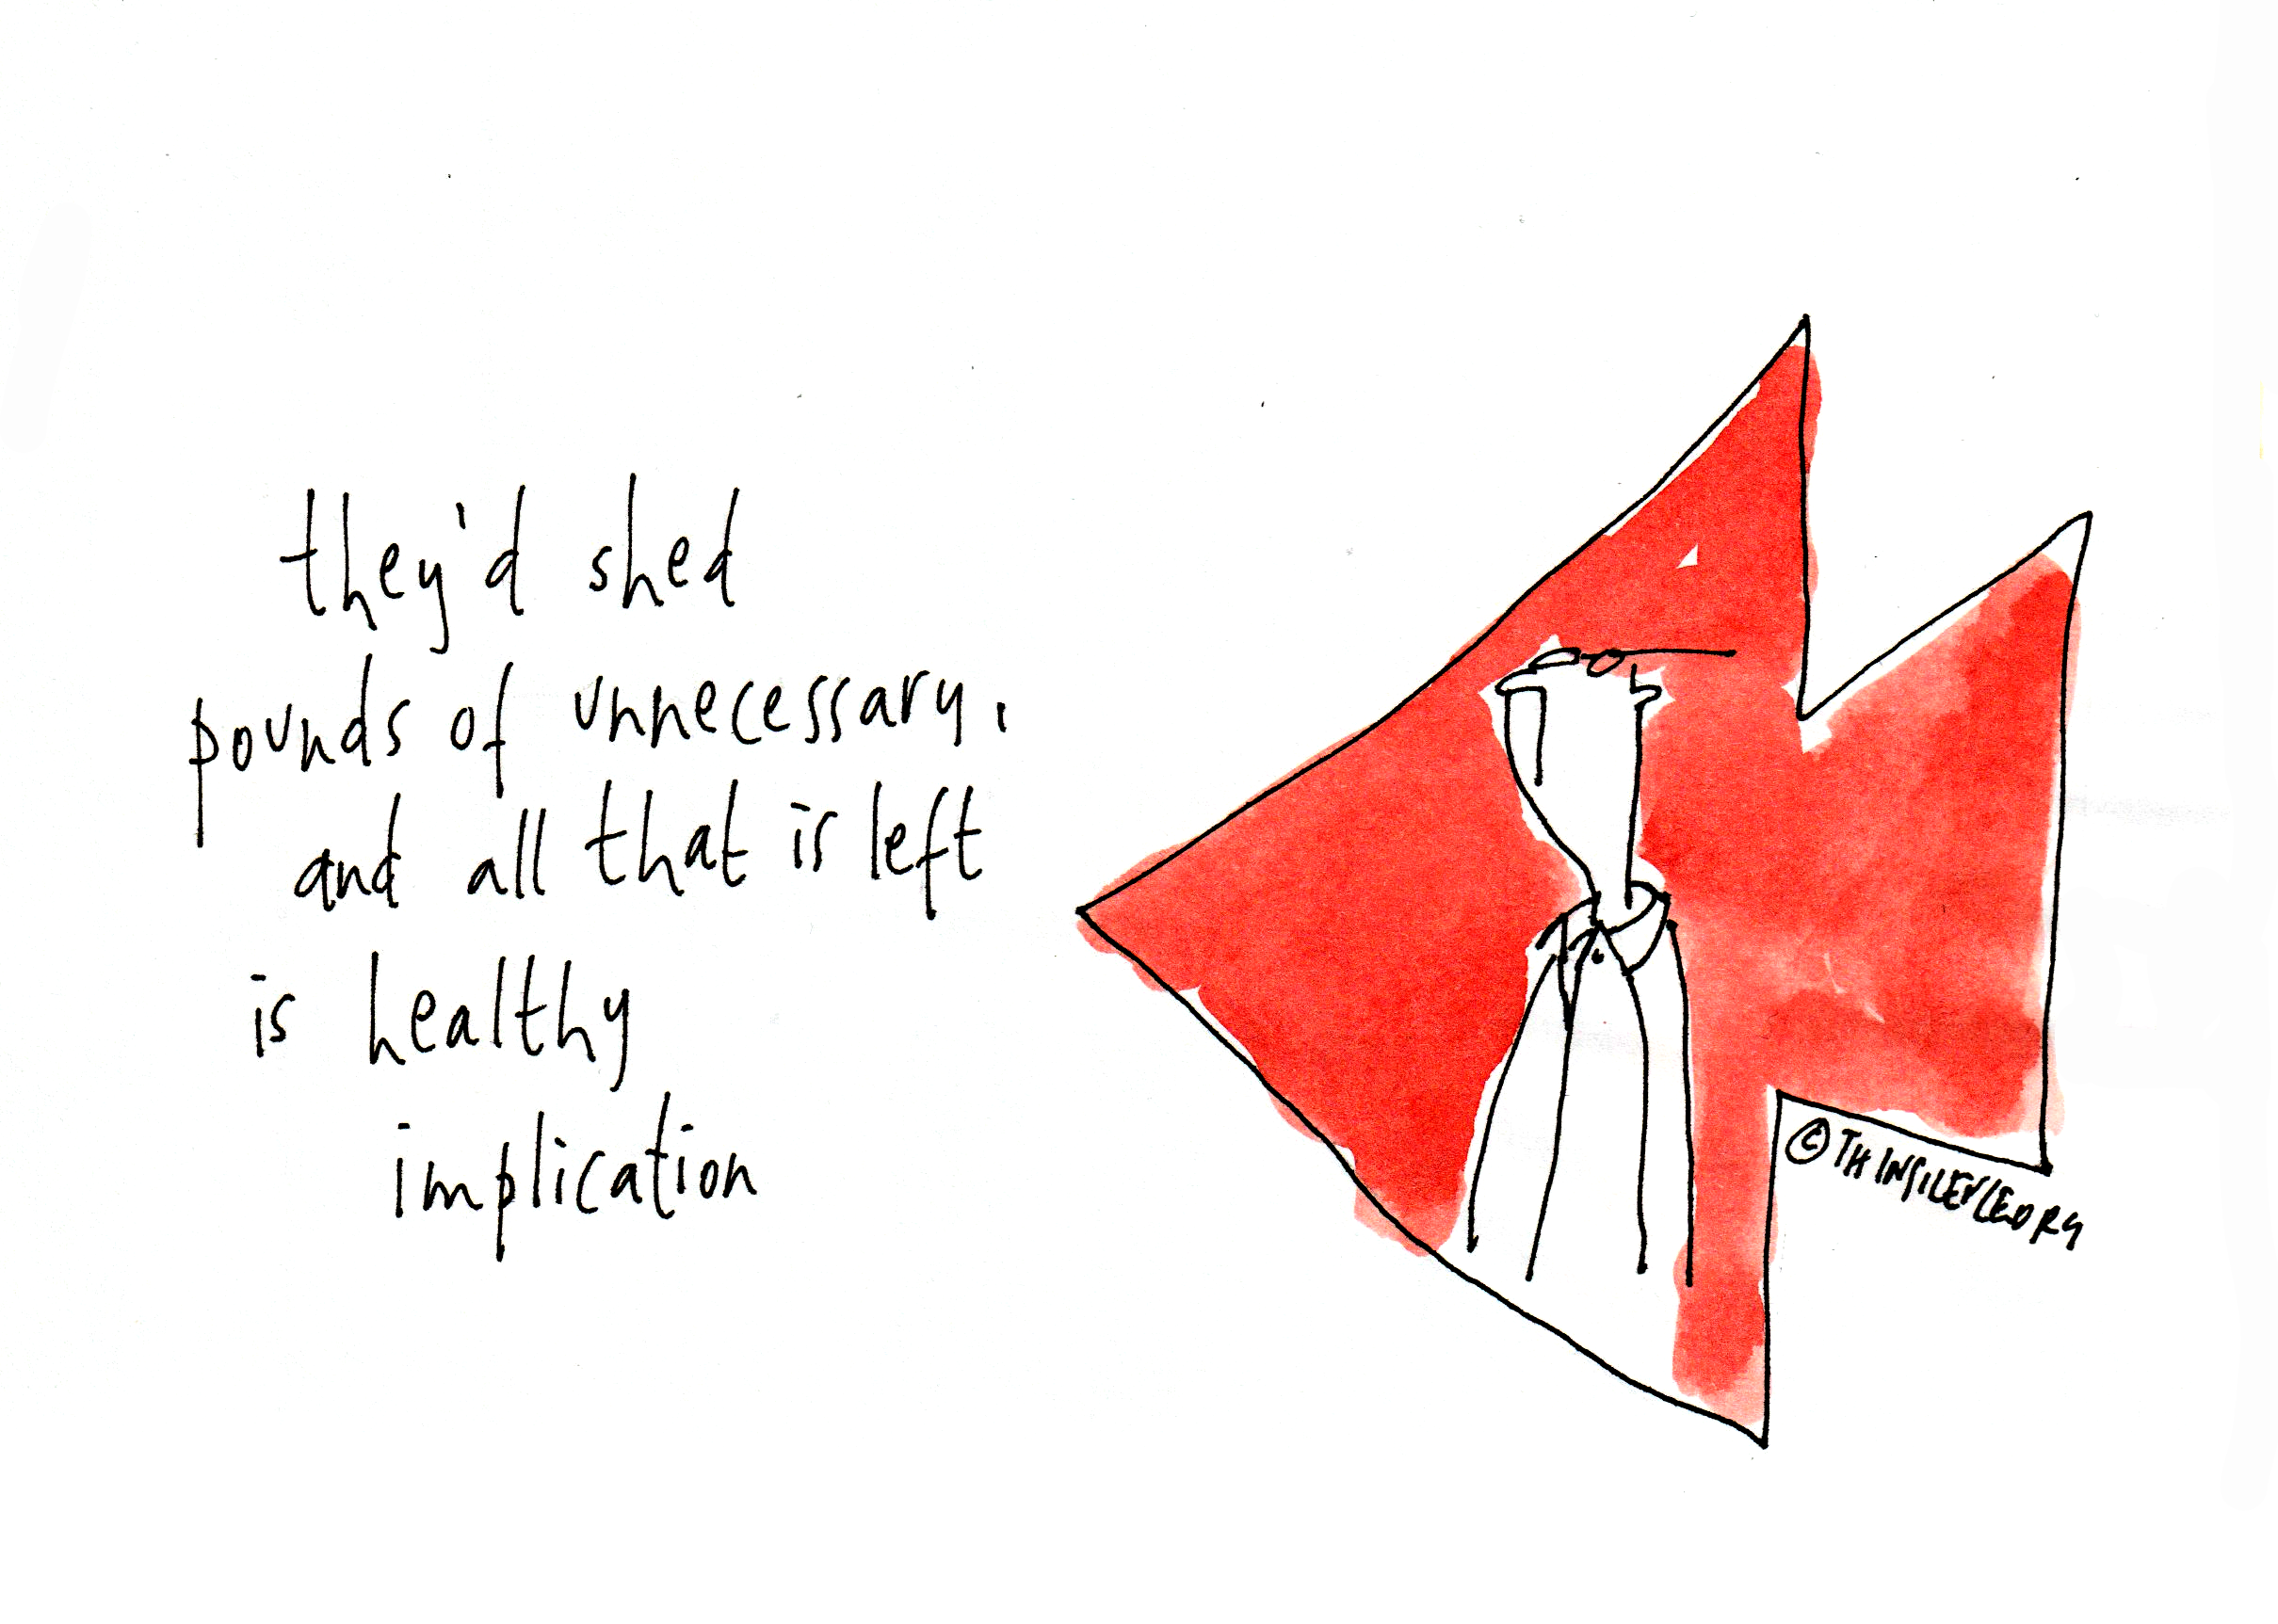 they'd shed
pounds of unnecessary.
and all that is left
is healthy
implication